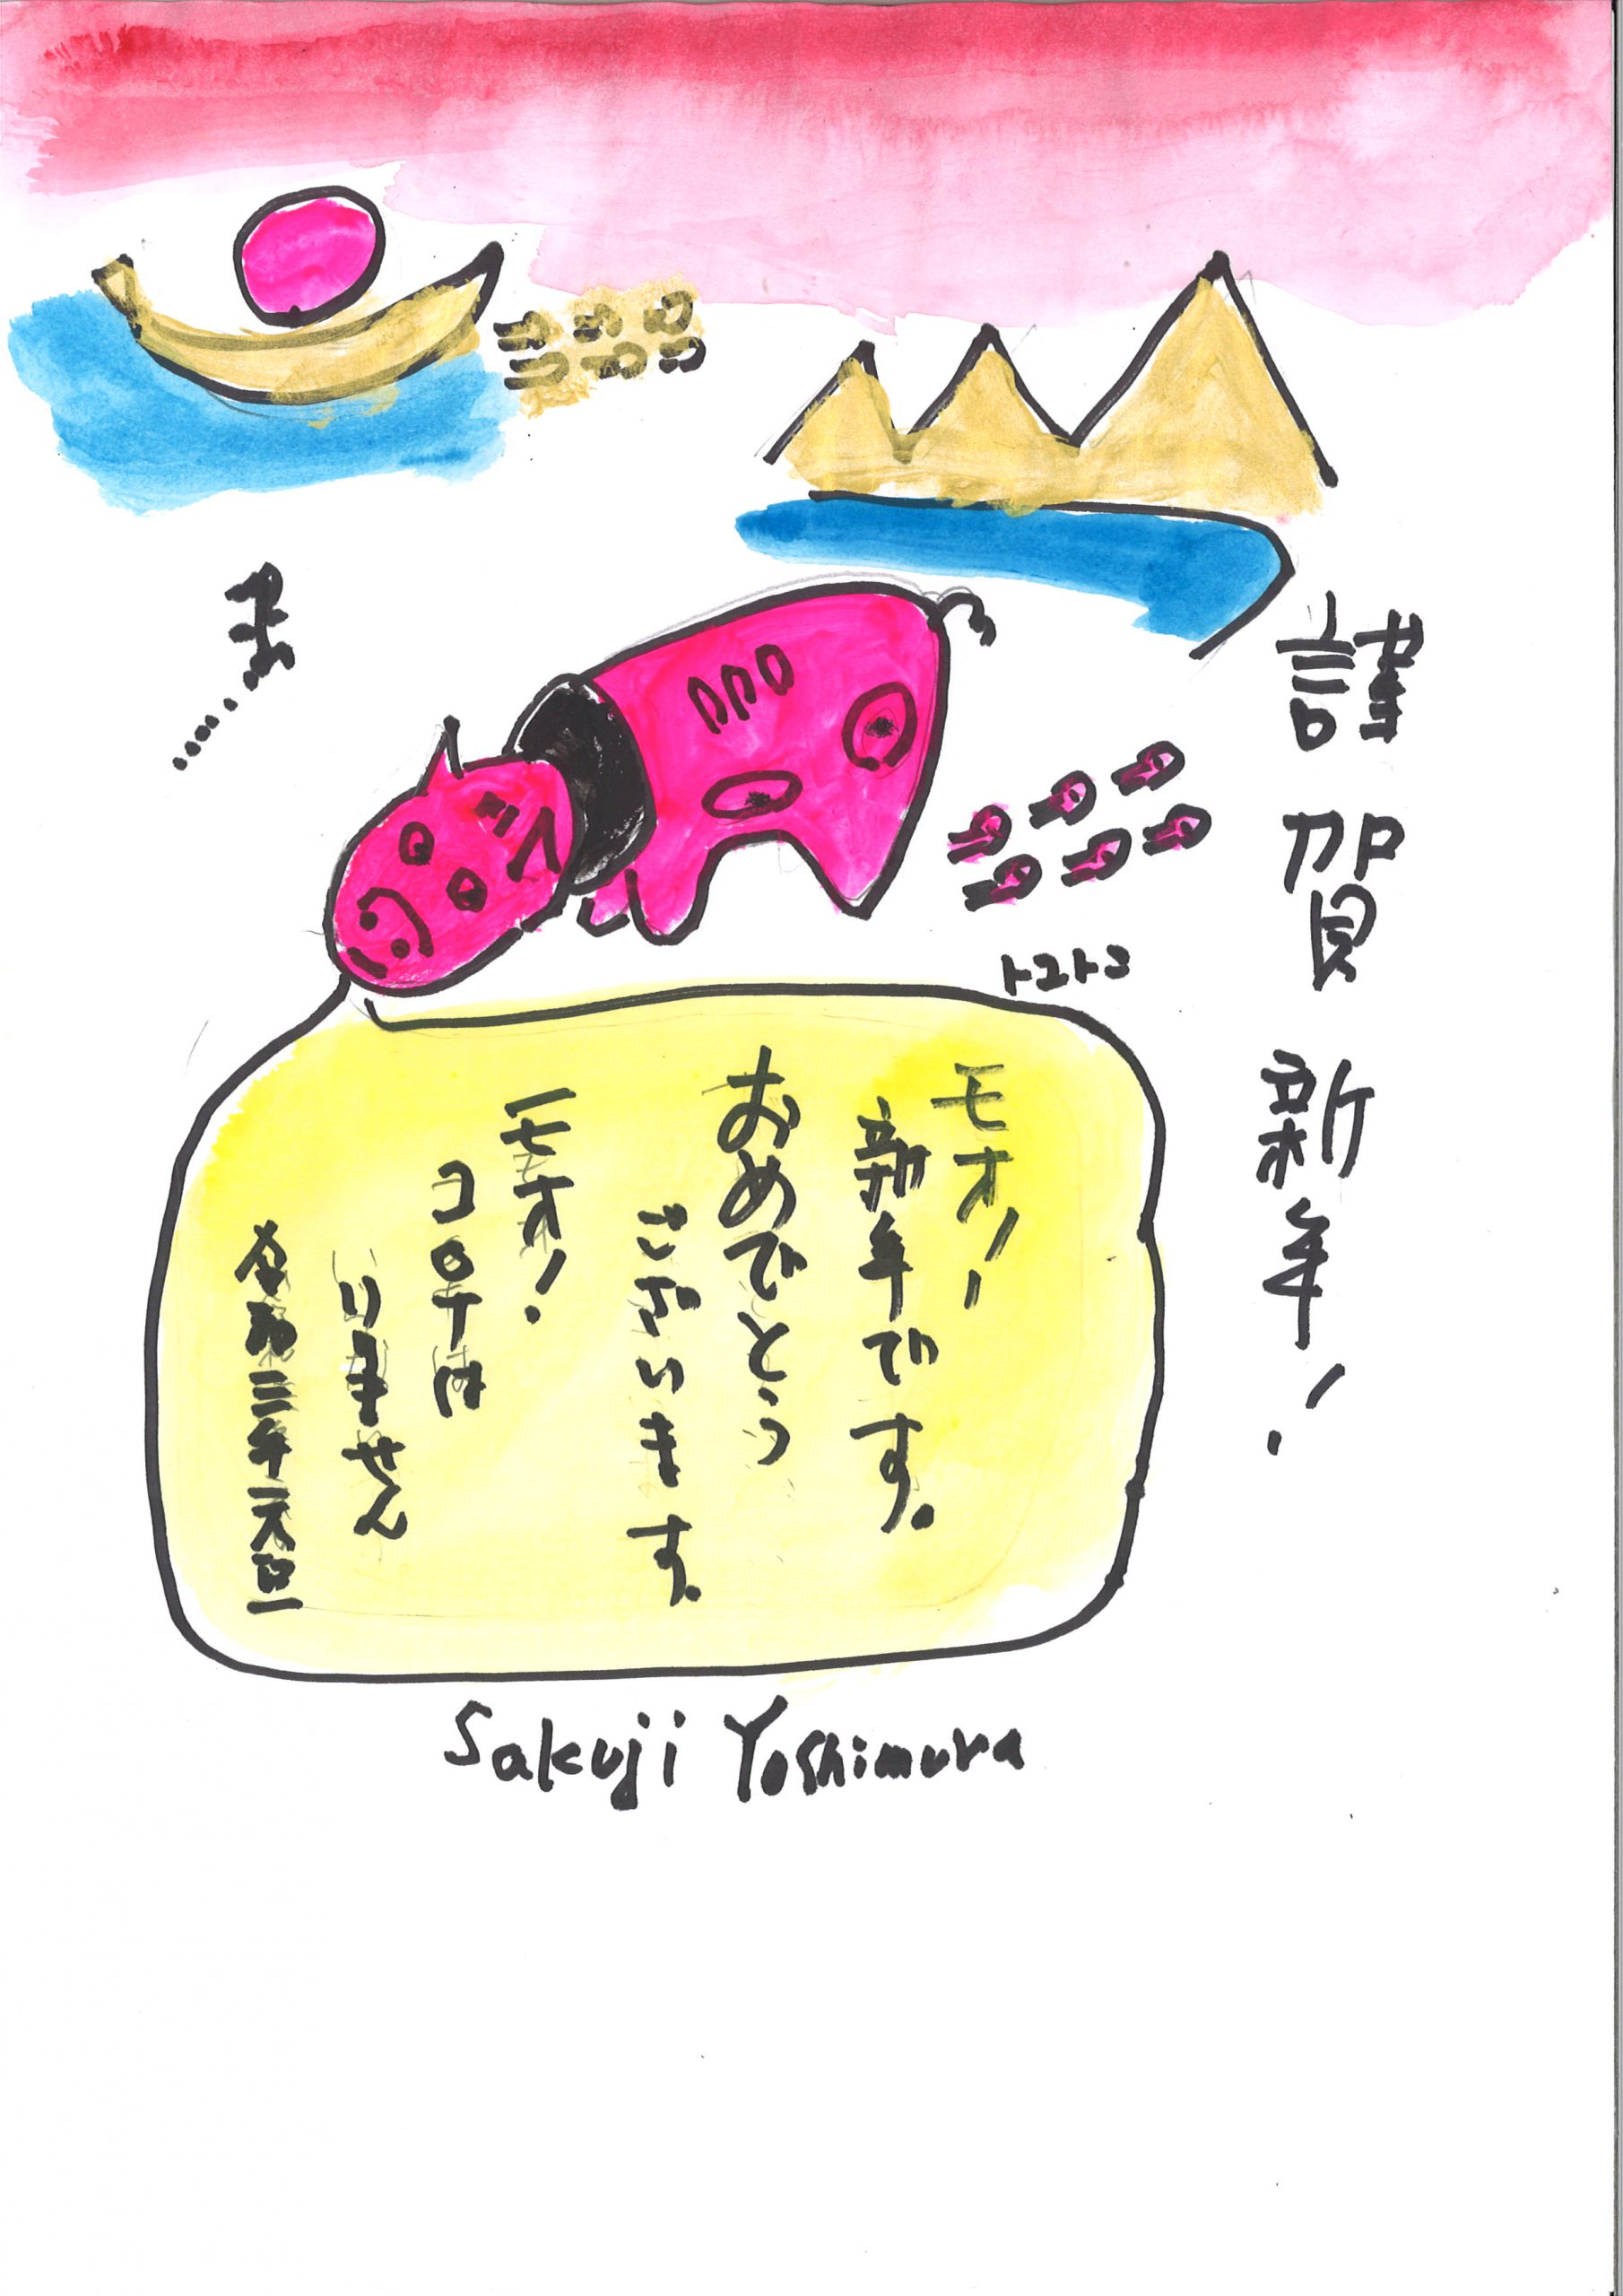 謹賀新年!
トコトコ
モオー
新年です。
おめでとう
ございます。
モオ!
コロナは
いりません
令和三年元旦
Sakuji Yoshimura